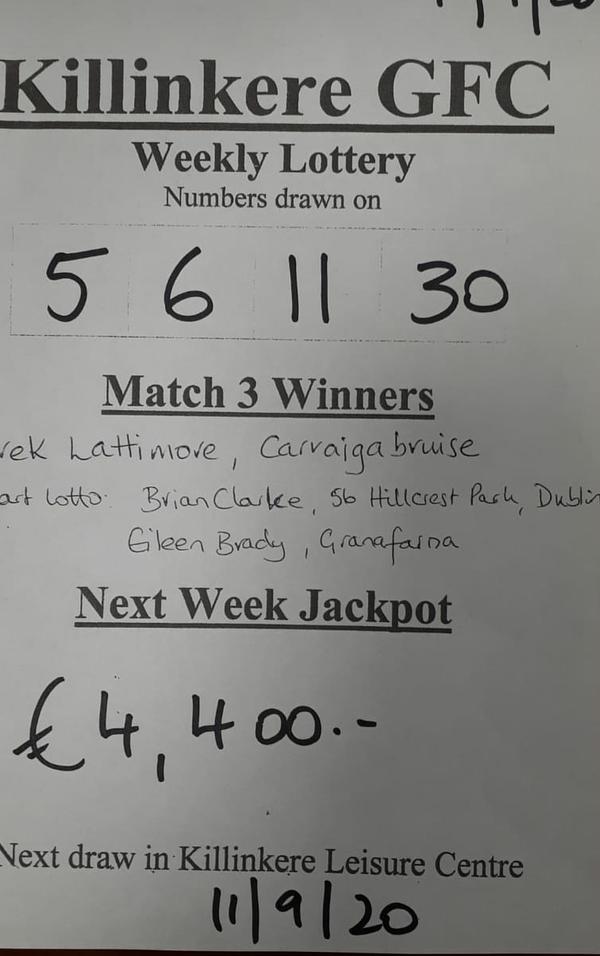 Killinkere GFC
Weekly Lottery
Numbers drawn on
5 6 11 30
Match 3 Winners
rek Lattimore, Carraigabruise
art Lotto: Brian Clarke, 56 Hillcrest Park, Dublin
Eileen Brady, Granafarna
Next Week Jackpot
€4,400.-
Next draw in Killinkere Leisure Centre
11/9/20